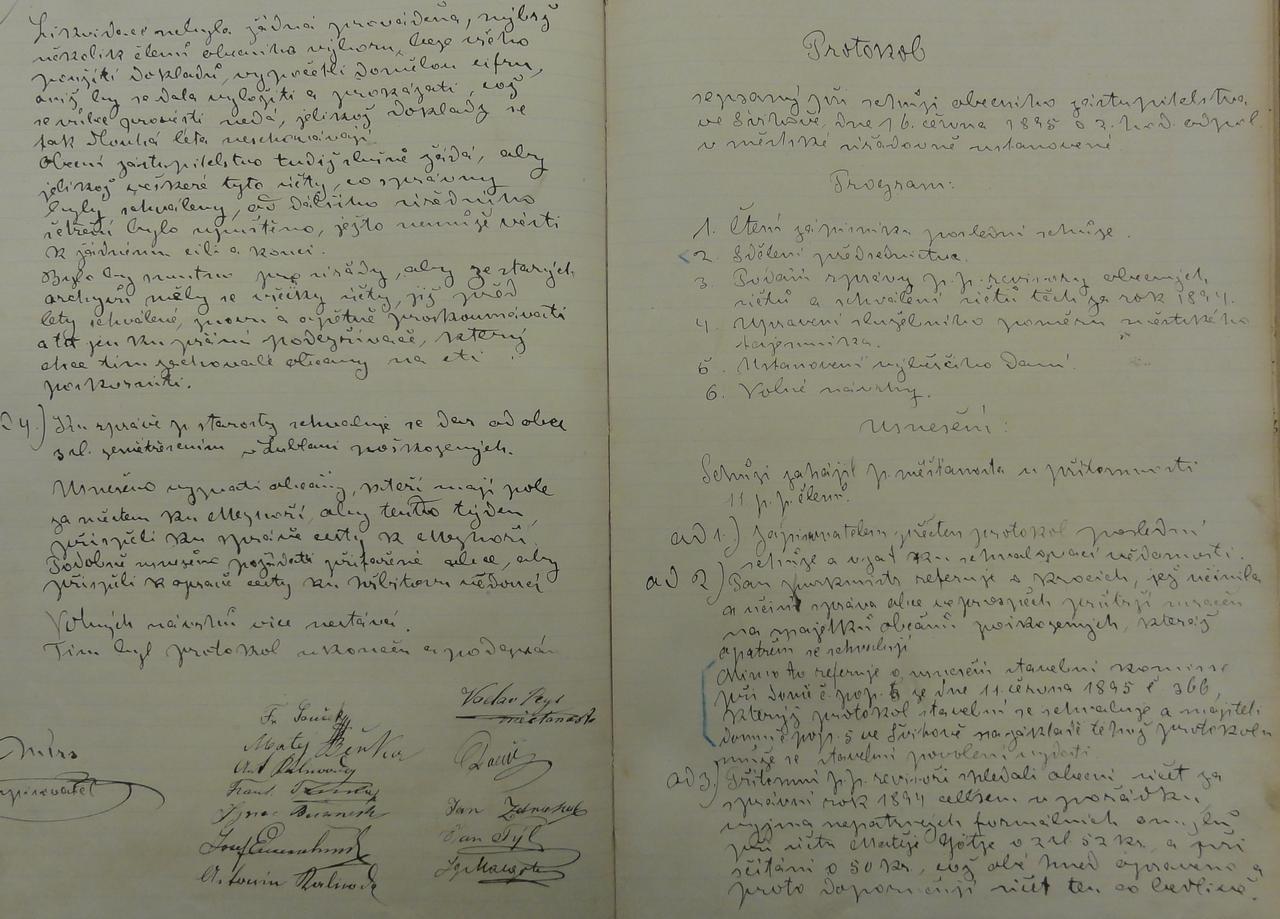 Likvidace nebyla žádná prováděna, nýbrž
několik členů obecního výboru, beze všeho
použití dokladů, vypočetli domělou cifru,
aniž by se dala vyložiti a prokázati, což
se vůbec provésti nedá, jelikož doklady se
tak dlouhá léta neschovávají.
Obecní zastupitelstvo tudíž slušně žádá, aby
jelikož veškeré tyto účty, co správny
byly schváleny, od dalšího úředního
šetření bylo upuštěno, ježto nemůže vésti
k žádnému cíli a konci.
Bylo by smutno pro úřady, aby ze starých
archivů měly se všecky účty, již před
lety schválené, znovu a opětně proskoumávati
a to jen ku přání podezřívače, který
chce tím zachovalé občany na cti
poskvrniti.
ad 4.) Ku zprávě p. starosty schvaluje se dar od obce
3 zl. zemětřesením v Lublani poškozených.
Usneseno vyzvati občany, kteří mají pole
za městem ku Mezihoří, aby tento týden
přispěli ku správě cesty k Mezihoří.
Podobně usneseno požádati přifařené obce, aby
přispěli k opravě cesty ku
Volných návrhů více nestává.
Tím byl protokol ukončen a podepsán
Václav
měšťanosta
Matěj
Ant. Kalivoda
Frant.
Jan
Jan Týl
Josef
Antonín Kalivoda
Protokol
sepsaný při schůzi obecního zastupitelstva
ve Švihově, dne 16. června 1895 o 2. hod. odpol.
v městské úřadovně ustanovené.
Program:
1. Čtení zápisníku poslední schůze.
2. Sdělení předsednictva.
3. Podání zprávy p. p. revisory obecných
účtů a schválení účtů těch za rok 1894.
4. Upravení služebního poměru městského
tajemníka.
5. Ustanovení výběrčího daní.
6. Volné návrhy.
Usnesení:
Schůzi zahájil p. měšťanosta u přítomnosti
11 p. p. členů.
ad 1.) Zapisovatelem přečten protokol poslední
schůze a vzat ku schvalovací vědomosti.
ad 2.) Pan purkmistr referuje o krocích, jež učinila
a učiní správa obce ve prospěch průtrží mračen
na majetku občanů poškozených, kteráž
opatření se schvalují
Mimo to referuje o usnesení stavební komise
při domě č. pop. 5 ze dne 11. června 1895 č. 366,
kterýž protokol stavební se schvaluje a majiteli
domu č. pop. 5 ve Švihově na základě téhož protokolu
může se stavební povolení vydati.
ad 3.) Přítomní p. p. revisoři shledali obecní účet za
správní rok 1894 celkem v pořádku,
vyjma nepatrných formálních omylů
při účtu Matěje o 2 zl. 52 kr. a při
sčítání o 50 kr., což obé hned opraveno a
proto doporučují účet ten co bedlivě